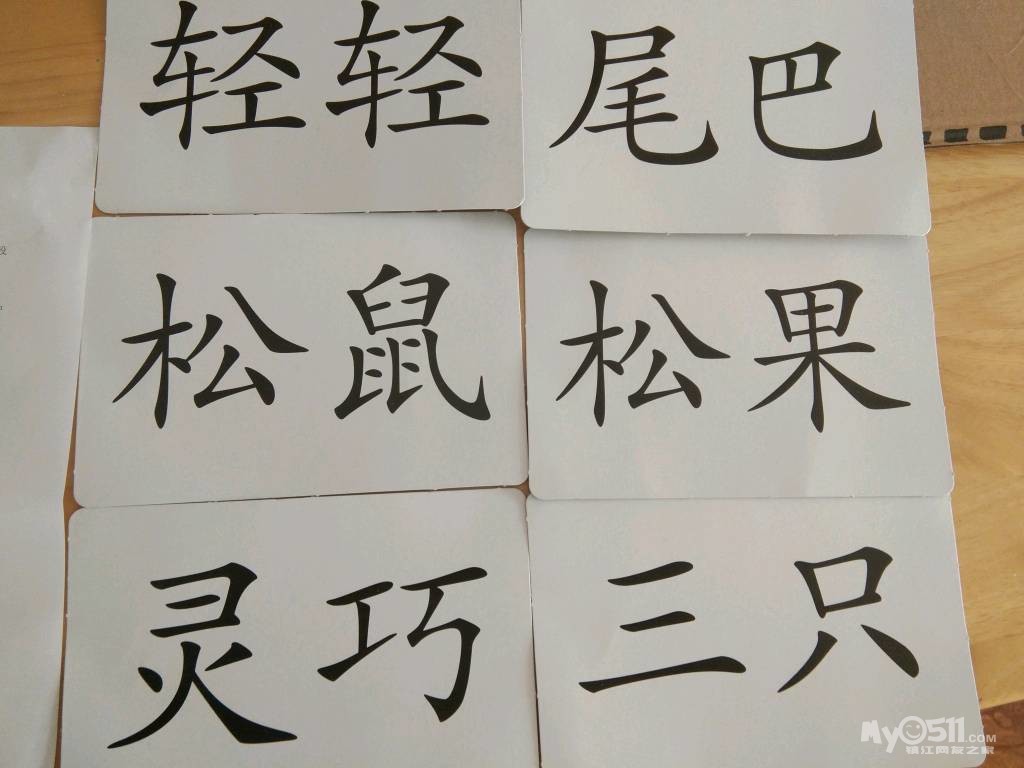 轻轻 尾巴
松鼠 松果
灵巧 三只
My0511.COM
镇江网友之家